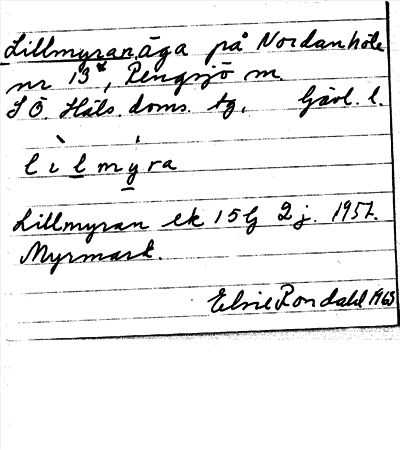 Lillmyran, äga på Nordanhöle
nr 13², Rengsjö sn.
S Ö. Häls. doms. tg, Gävl. l.
lilmyra
Lillmyran ek 15 G 2 j. 1957.
Myrmark.
Elsie Rondahl 1963